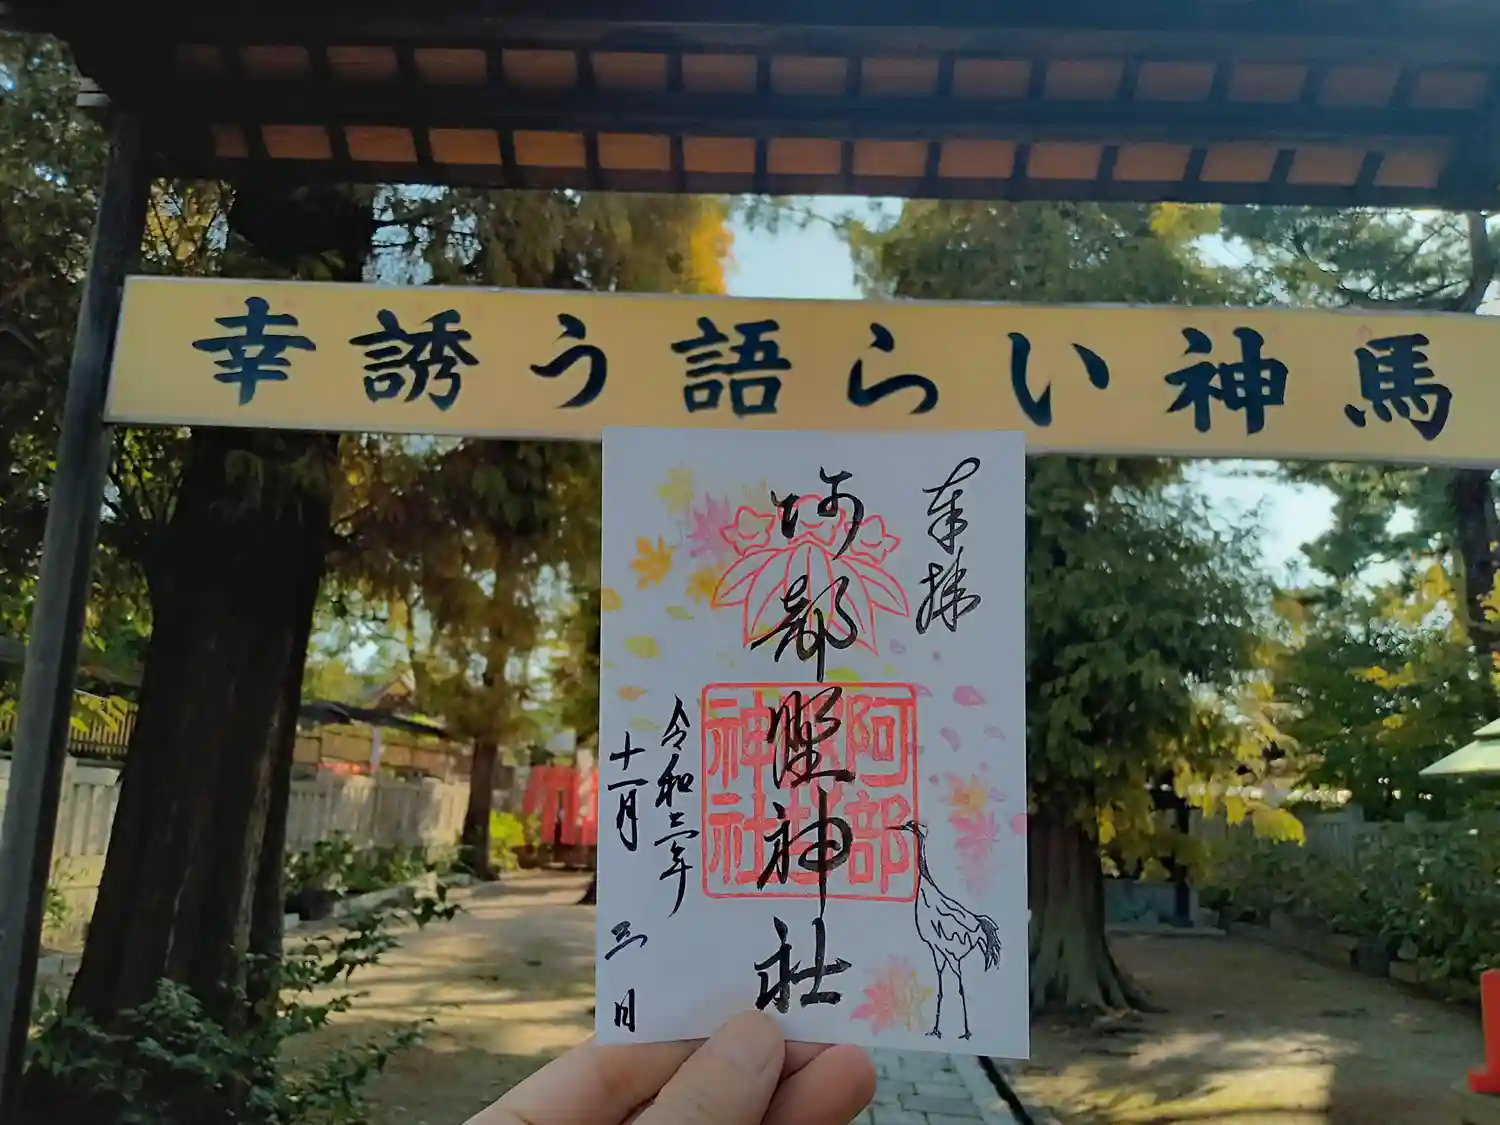 幸誘う語らい神馬
奉拝
阿部野神社
令和二年
十一月
三日
阿部野神社